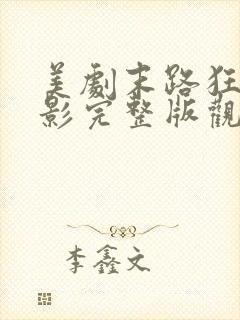 美劇末路狂
影完整版觀
李鑫文